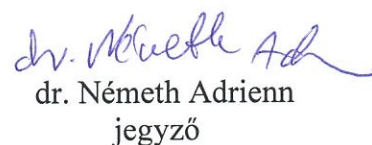 dr. Németh Adr
dr. Németh Adrienn
jegyző